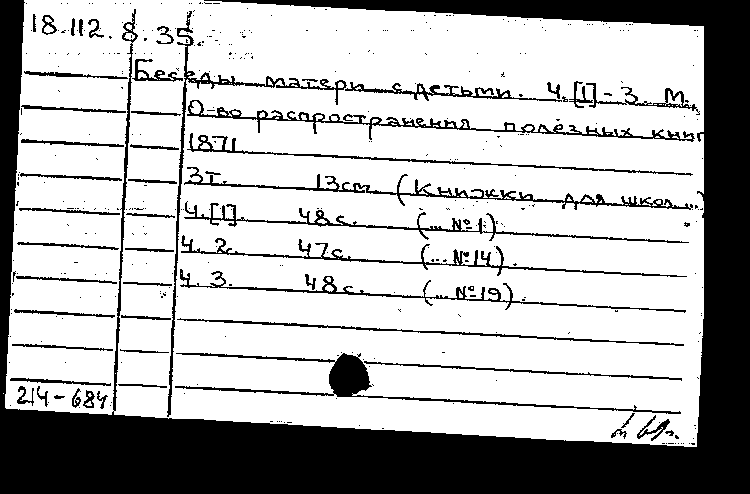 18.112.8.35.
Беседы матери с детьми. Ч.[1]-3. М.,
О-во распространения полезных книг
1871
3т. 13см (Книжки для школ...)
Ч.[1]. 48с. (... №1)
Ч. 2. 47с. (... №14).
Ч. 3. 48с. (... №19).
214-684